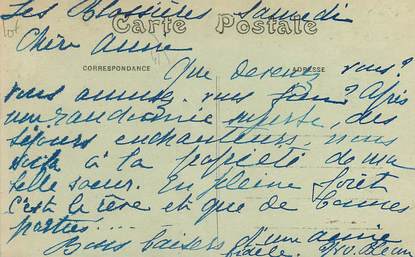 Les Samedi
Carte Postale
Chère Amie
CORRESPONDANCE ADRESSE
Que devenez vous?
vous amusez-vous ? Après
une randonnée superbe, des
séjours enchanteurs, nous
voilà à la propriété de ma
belle soeur. En pleine forêt
c'est le rêve et que de bonnes
parties....
Bons baisers d'une amie
fidèle.